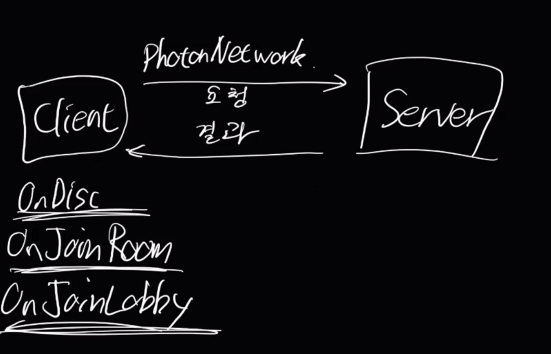 PhotonNetwork.
요청
Client
Server
결과
OnDisc
OnJoinRoom
OnJoinLobby